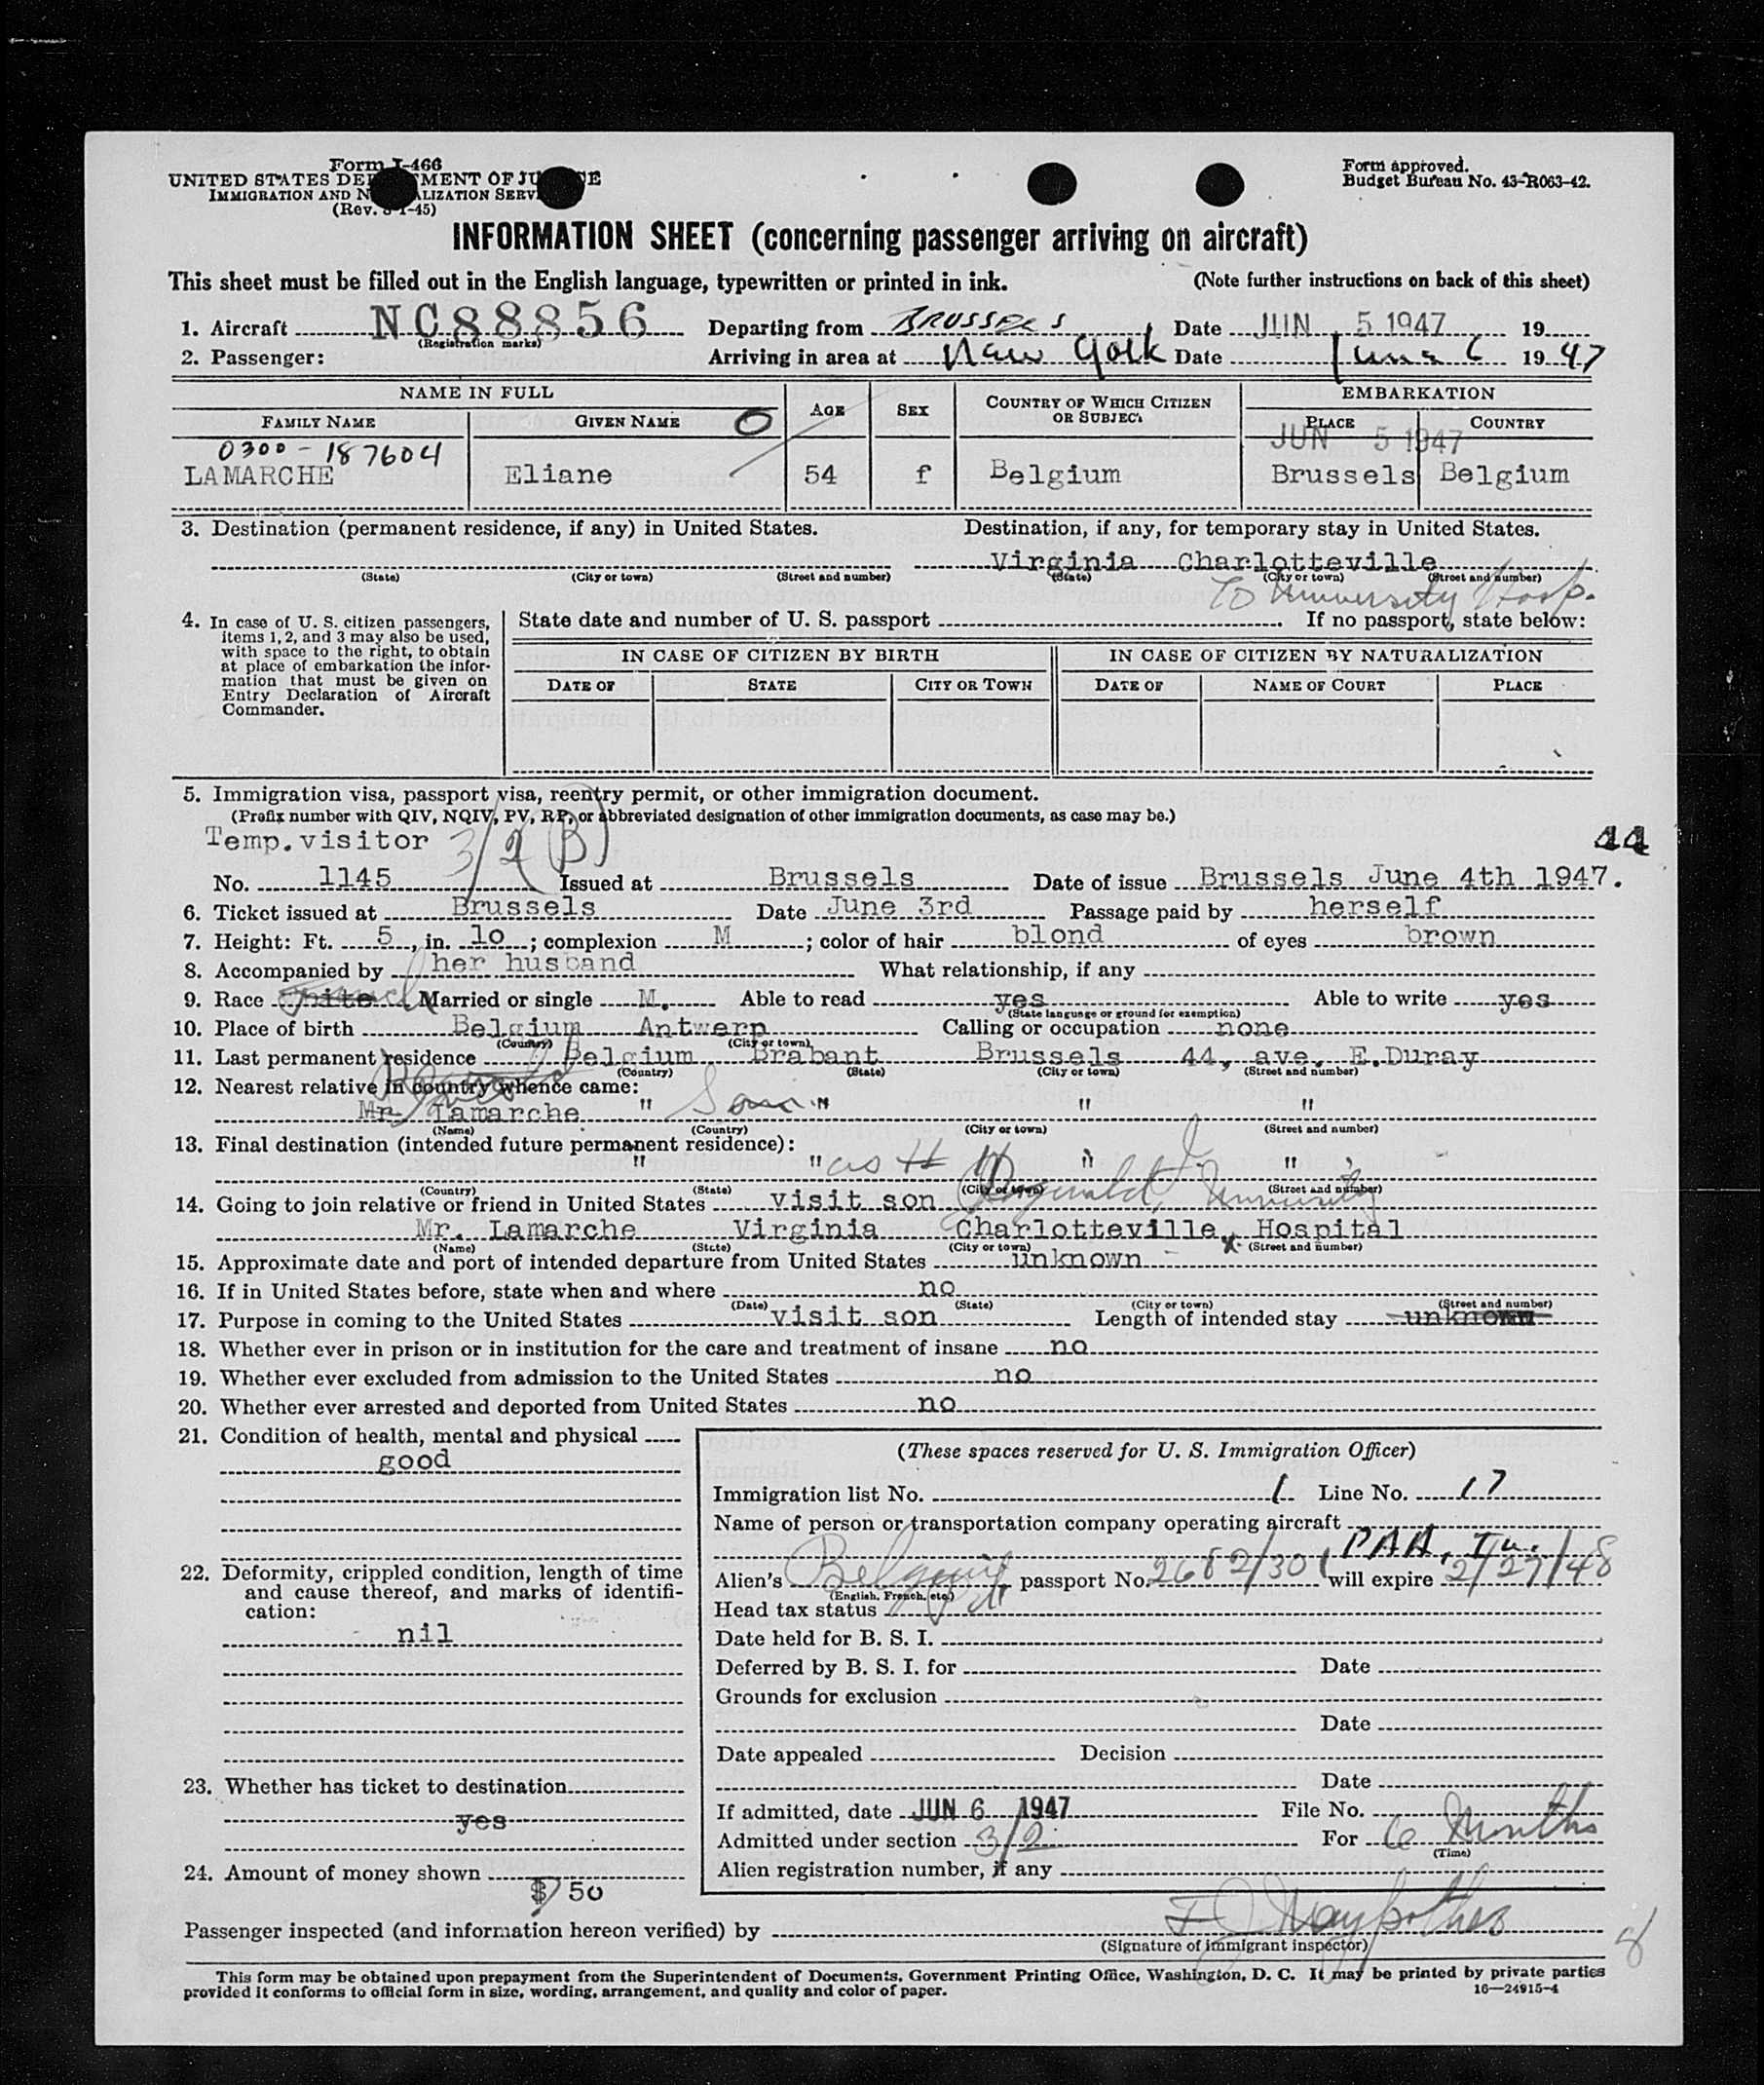 Form I-466
UNITED STATES DEPARTMENT OF JUSTICE
IMMIGRATION AND NATURALIZATION SERVICE
(Rev. 8-1-45)
Form approved.
Budget Bureau No. 43-R063-42.
INFORMATION SHEET (concerning passenger arriving on aircraft)
This sheet must be filled out in the English language, typewritten or printed in ink. (Note further instructions on back of this sheet)
1. Aircraft NC88856 Departing from BRUSSELS Date JUN 5 1947 19
(Registration marks)
2. Passenger: Arriving in area at New York Date June 6 1947
NAME IN FULL AGE SEX COUNTRY OF WHICH CITIZEN OR SUBJECT EMBARKATION
FAMILY NAME GIVEN NAME O PLACE COUNTRY
0300-187604 JUN 5 1947
LAMARCHE Eliane 54 f Belgium Brussels Belgium
3. Destination (permanent residence, if any) in United States. Destination, if any, for temporary stay in United States.
Virginia Charlotteville
(State) (City or town) (Street and number) (State) (City or town) (Street and number)
To University Hosp.
4. In case of U. S. citizen passengers, items 1, 2, and 3 may also be used, with space to the right, to obtain at place of embarkation the information that must be given on Entry Declaration of Aircraft Commander.
State date and number of U. S. passport If no passport, state below:
IN CASE OF CITIZEN BY BIRTH IN CASE OF CITIZEN BY NATURALIZATION
DATE OF STATE CITY OR TOWN DATE OF NAME OF COURT PLACE
5. Immigration visa, passport visa, reentry permit, or other immigration document.
(Prefix number with QIV, NQIV, PV, RP, or abbreviated designation of other immigration documents, as case may be.)
Temp. visitor 3/2 (B) 44
No. 1145 Issued at Brussels Date of issue Brussels June 4th 1947.
6. Ticket issued at Brussels Date June 3rd Passage paid by herself
7. Height: Ft. 5, in. 10; complexion M; color of hair blond of eyes brown
8. Accompanied by her husband What relationship, if any
9. Race white French Married or single M. Able to read yes Able to write yes
(State language or ground for exemption)
10. Place of birth Belgium Antwerp Calling or occupation none
(Country) (City or town)
11. Last permanent residence Belgium Brabant Brussels 44, ave. E.Duray
(Country) (State) (City or town) (Street and number)
12. Nearest relative in country whence came:
Mr Lamarche " Son " " "
(Name) (Country) (City or town) (Street and number)
13. Final destination (intended future permanent residence):
" " as # 11 " " "
(Country) (State) (City or town) (Street and number)
14. Going to join relative or friend in United States visit son University
Mr. Lamarche Virginia Charlotteville, Hospital
(Name) (State) (City or town) x (Street and number)
15. Approximate date and port of intended departure from United States unknown
16. If in United States before, state when and where no
(Date) (State) (City or town) (Street and number)
17. Purpose in coming to the United States visit son Length of intended stay unknown
18. Whether ever in prison or in institution for the care and treatment of insane no
19. Whether ever excluded from admission to the United States no
20. Whether ever arrested and deported from United States no
21. Condition of health, mental and physical
good
22. Deformity, crippled condition, length of time and cause thereof, and marks of identification:
nil
23. Whether has ticket to destination
yes
24. Amount of money shown
$ 50
(These spaces reserved for U. S. Immigration Officer)
Immigration list No. 1 Line No. 17
Name of person or transportation company operating aircraft
PAA, In.
Alien's Belgium passport No. 2682/301 will expire 2/27/48
(English, French, etc.)
Head tax status
Date held for B. S. I.
Deferred by B. S. I. for Date
Grounds for exclusion
Date
Date appealed Decision
Date
If admitted, date JUN 6 1947 File No.
Admitted under section 3/2 For 6 Months
(Time)
Alien registration number, if any
Passenger inspected (and information hereon verified) by
(Signature of immigrant inspector) 8
This form may be obtained upon prepayment from the Superintendent of Documents, Government Printing Office, Washington, D. C. It may be printed by private parties
provided it conforms to official form in size, wording, arrangement, and quality and color of paper. 16—24915-4